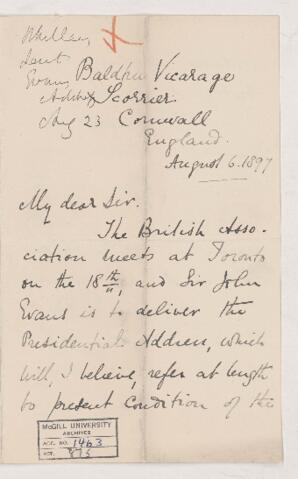 sent
Evans
Address
Aug 23
Baldhu Vicarage
Scorrier
Cornwall
England.
August 6. 1897
My dear Sir.
The British Asso-
ciation meets at Toronto
on the 18th, and Sir John
Evans is to deliver the
Presidential Address, which
will, I believe, refer at length
to present condition of the
McGILL UNIVERSITY
ARCHIVES
ACC. NO. 1463
REF. 875